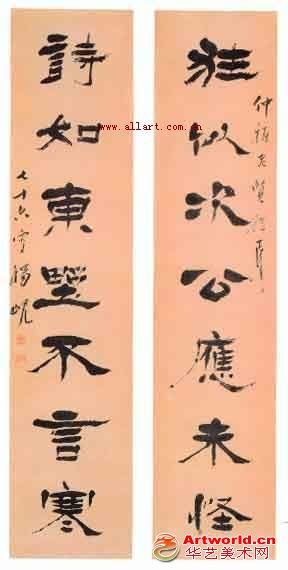 狂似次公應未怪
詩如東野不言寒
七十六叟楊峴
www.allart.com.cn
www.allart.com.cn
Artworld.cn
华艺美术网